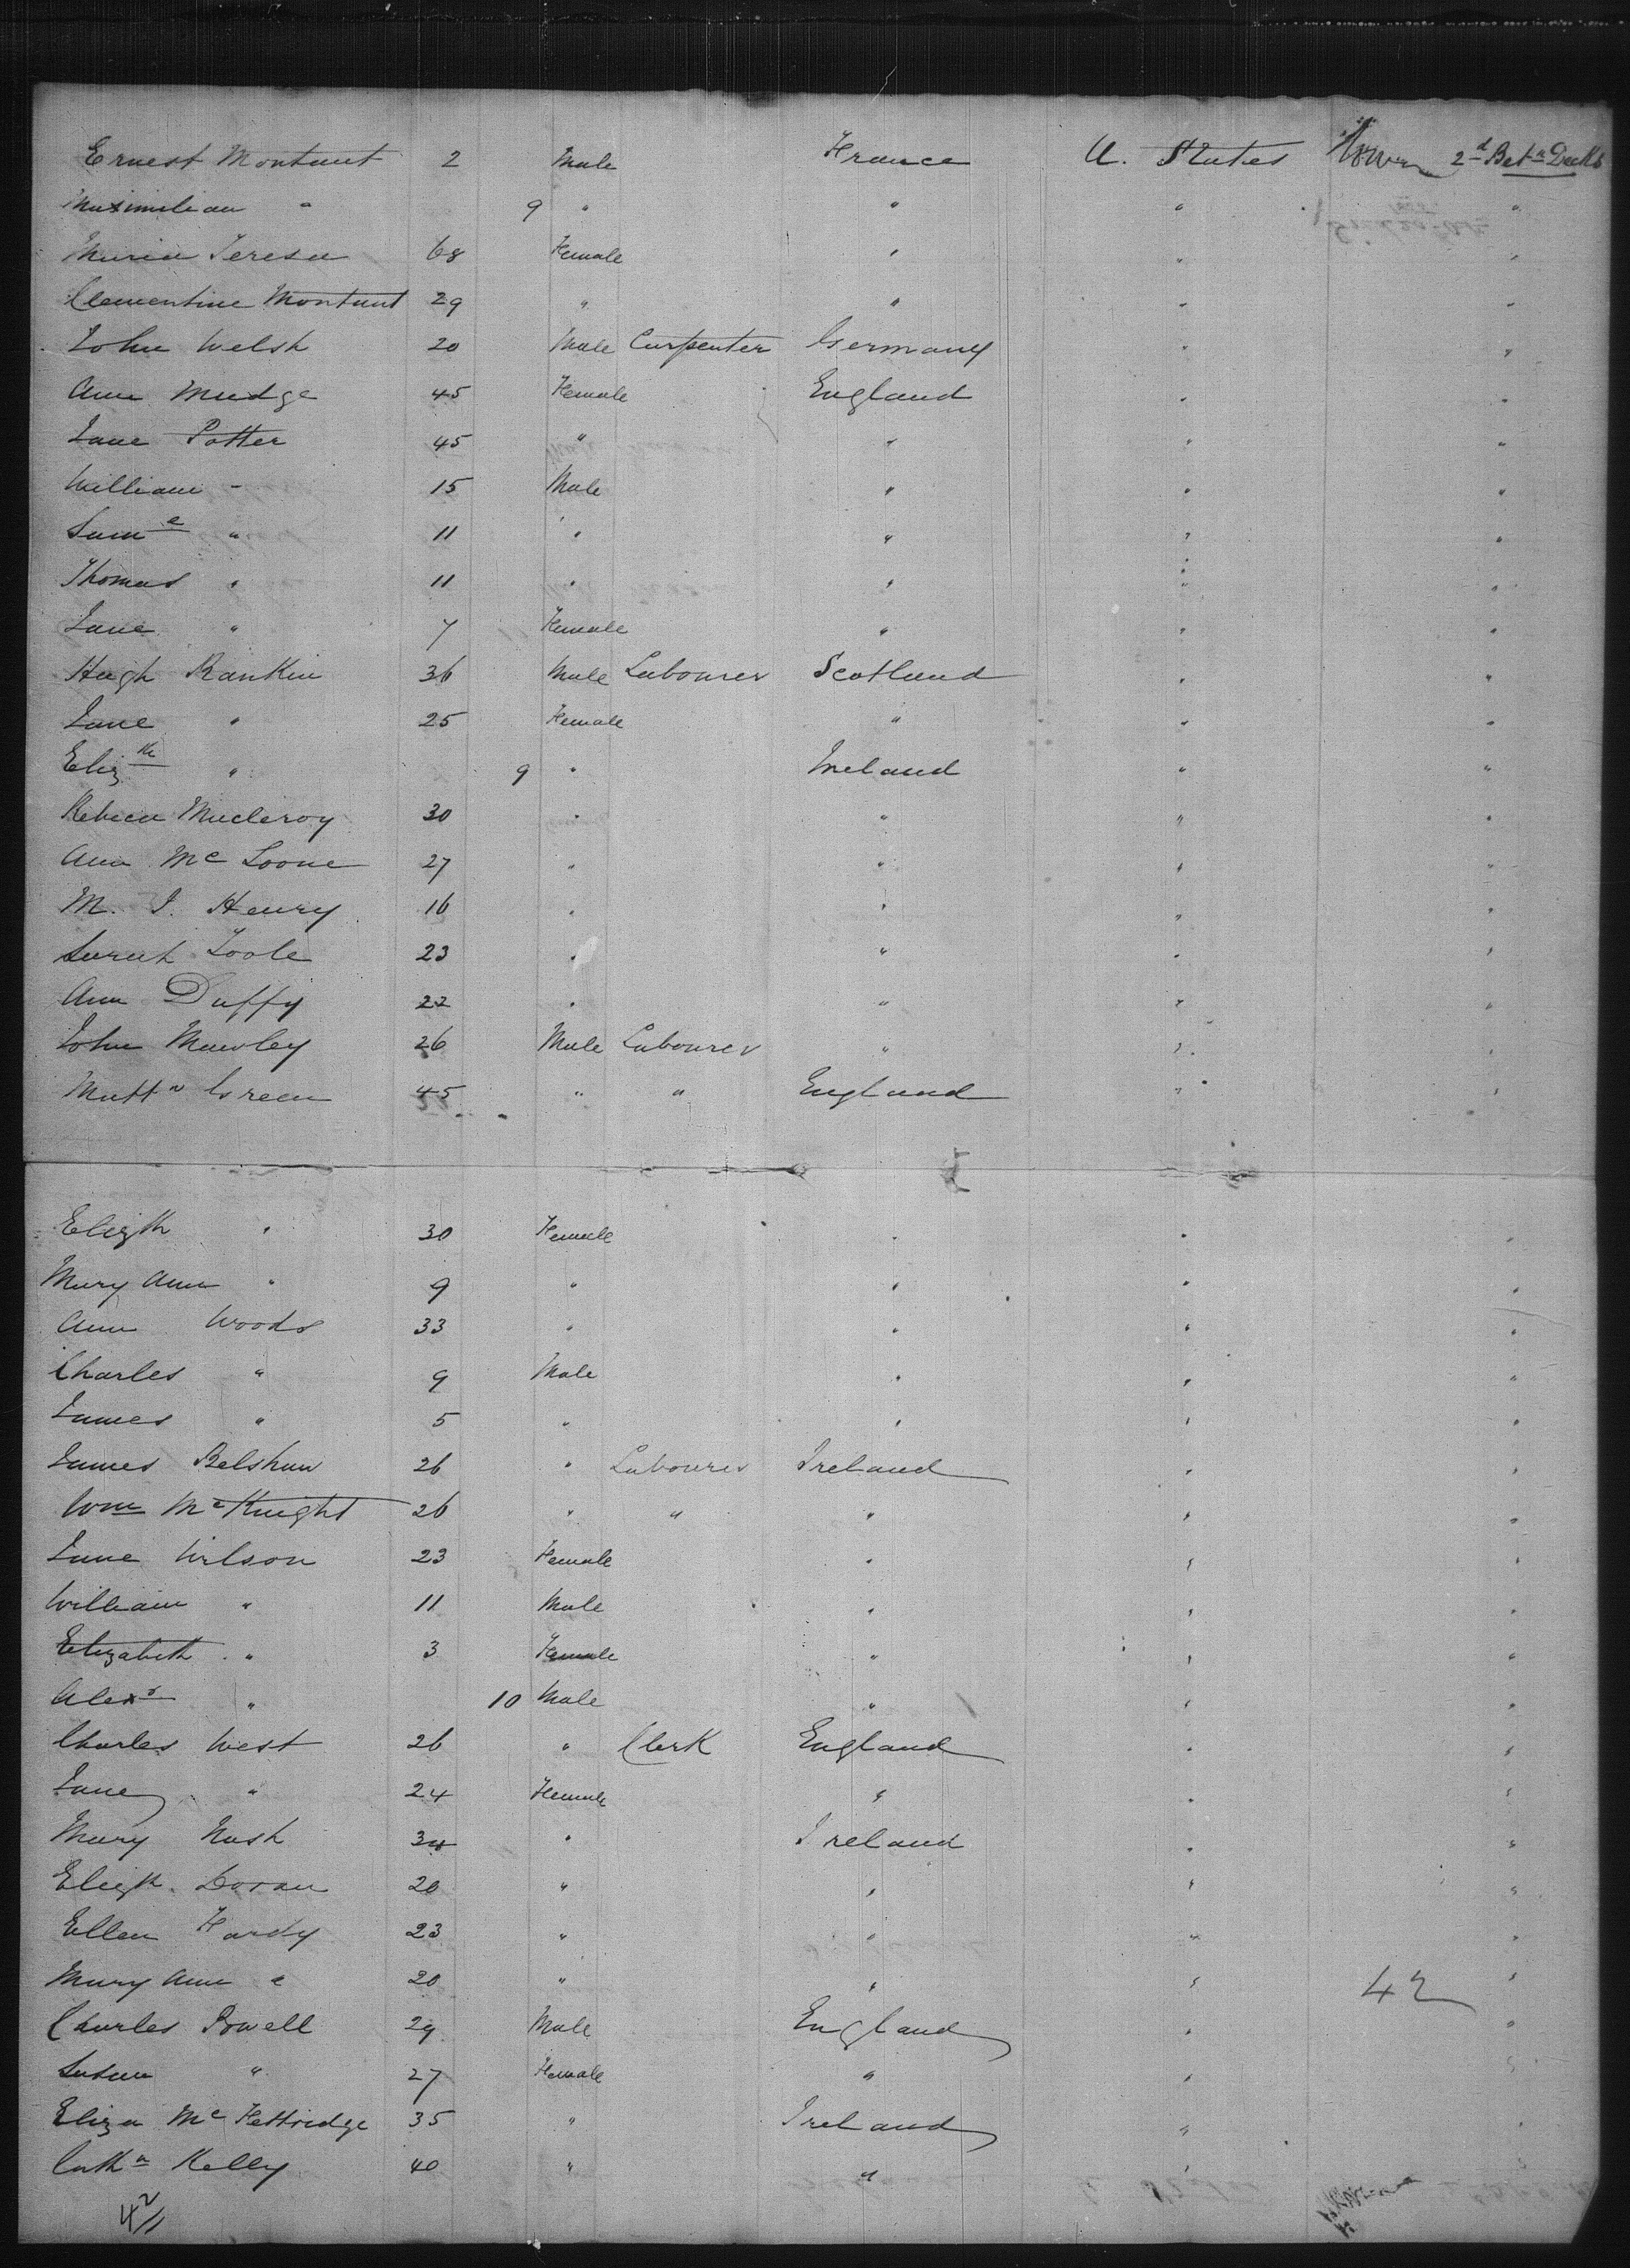 Ernest Montant 2 Male France U. States 2d Betn Decks
Maximilian " 9 " " " "
Maria Teresa 68 Female " " "
Clementine Montant 29 " " " "
John Welsh 20 Male Carpenter Germany " "
Ann Mudge 45 Female England " "
Jane Potter 45 " " " "
William " 15 Male " " "
Saml " 11 " " " "
Thomas " 11 " " " "
Jane " 7 Female " " "
Hugh Rankin 36 Male Labourer Scotland " "
Jane " 25 Female " " "
Elizth " 9 " Ireland " "
Rebeca Mucleroy 30 " " " "
Ann Mc Loone 27 " " " "
M. J. Henry 16 " " " "
Sarah Toole 23 " " " "
Ann Duffy 22 " " " "
John Mawley 26 Male Labourer " " "
Mattw Green 45 " " England " "
Elizth " 30 Female " " "
Mary Ann " 9 " " " "
Ann Woods 33 " " " "
Charles " 9 Male " " "
James " 5 " " " "
James Belshaw 26 " Labourer Ireland " "
Wm McKnight 26 " " " " "
Jane Wilson 23 Female " " "
William " 11 Male " " "
Elizabeth " 3 Female " " "
Alexr " 10 Male " " "
Charles West 26 " Clerk England " "
Jane " 24 Female " " "
Mary Nash 34 " Ireland " "
Elizth Doran 20 " " " "
Ellen Hardy 23 " " " "
Mary Ann " 20 " " " 42 "
Charles Powell 29 Male England " "
Susan " 27 Female " " "
Eliza Mc Fettridge 35 " Ireland " "
Cathn Kelly 40 " " "
42